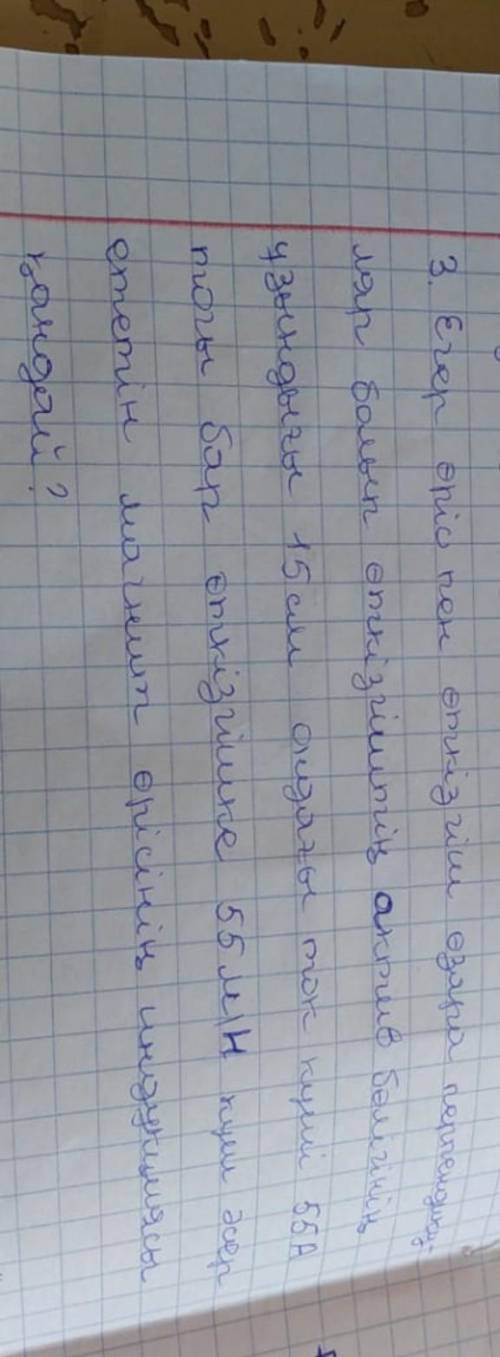 3. Егер өріс пен өткізгіш өзара перпендику-
ляр болып өткізгіштің актив бөлігінің
ұзындығы 15 см ондағы ток күші 55А
тогы бар өткізгішке 55 мН күш әсер
ететін магнит өрісінің индукциясы
қандай?